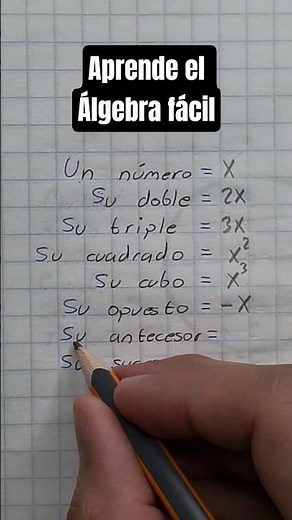 Aprende el
Álgebra fácil
Un número = x
Su doble = 2x
Su triple = 3x
Su cuadrado = x²
Su cubo = x³
Su opuesto = -x
Su antecesor =
Su